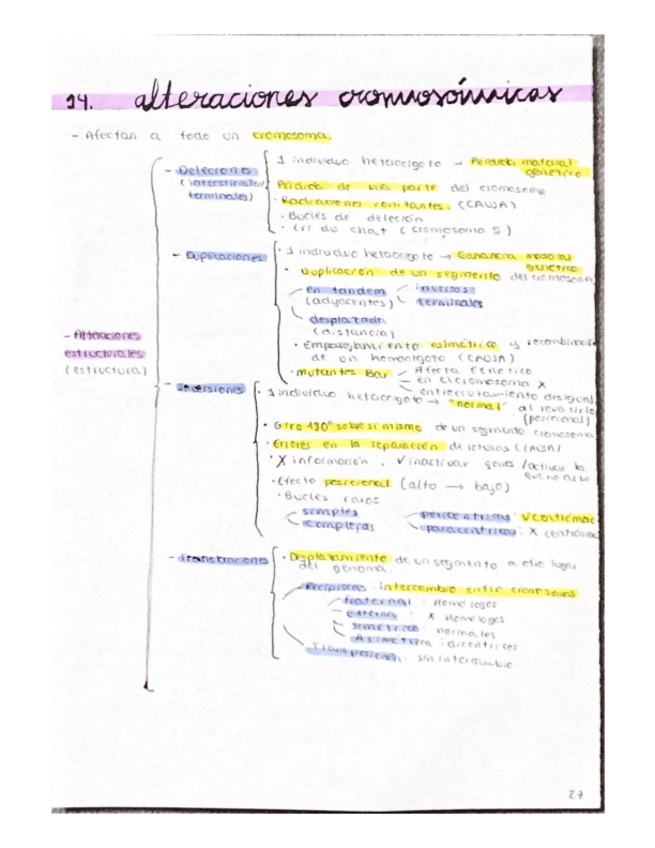 14. alteraciones cromosómicas
- Afectan a todo un cromosoma.
- Alteraciones
estructurales
(estructura)
- Deleciones
(intersticiales/
terminales)
1 individuo heterocigoto → Pérdida material
genético
Pérdida de una parte del cromosoma
· Radiaciones ionizantes. (CAUSA)
· Bucles de deleción
· Cri du chat (cromosoma 5)
- Duplicaciones
· 1 individuo heterocigoto → Ganancia material
genético
· Duplicación de un segmento del cromosoma
en tandem
(adyacentes)
inversas
terminales
desplazada
(distancia)
· Emparejamiento asimétrico y recombinación
de un homocigoto (CAUSA)
· mutantes Bar
Afecta fenético
en el cromosoma X
entrecruzamiento desigual
- Inversiones
· 1 individuo heterocigoto → "normal" al revertirlo
(posicional)
· Giro 180° sobre sí mismo de un segmento cromosoma
· Errores en la reparación de roturas (CAUSA)
· X información, V inactivar genes /activar los
que no debe
· Efecto posicional (alto → bajo)
· Bucles raros
simples
complejas
pericéntricas: V centrómero
paracéntricas: X centrómero
- Translocaciones
· Desplazamiento de un segmento a otro lugar
del genoma.
Recíprocas: intercambio entre cromosomas
fraternal: Homólogos
externa: X Homólogos
simétrica: normales
Asimétrica: dicéntricos
Transposición: sin intercambio.
27